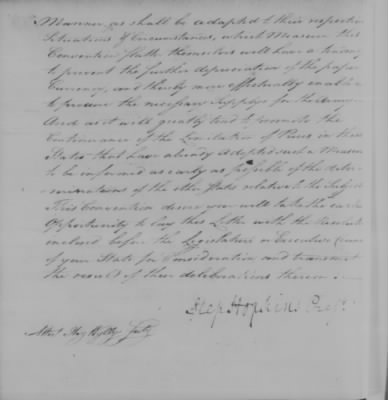 Manner, as shall be adapted to their respective
Situations & Circumstances, which Measure this
Convention flatter themselves will have a tendency
to prevent the further depreciation of the paper
Currency, and thereby more effectually enable
to procure the necessary Supplys for the Army
And as it will greatly tend to promote the
Continuance of the Limitation of Prices in those
States that have already adopted such a Measure
to be informed as early as possible of the deter-
minations of the other States relative to the Subject
This Convention desire you will take the earliest
Opportunity to lay this Letter with the
enclosed before the Legislature or Executive
of your State for Consideration and transmit
the result of their deliberations thereon.
Step Hopkins Presi
Attest